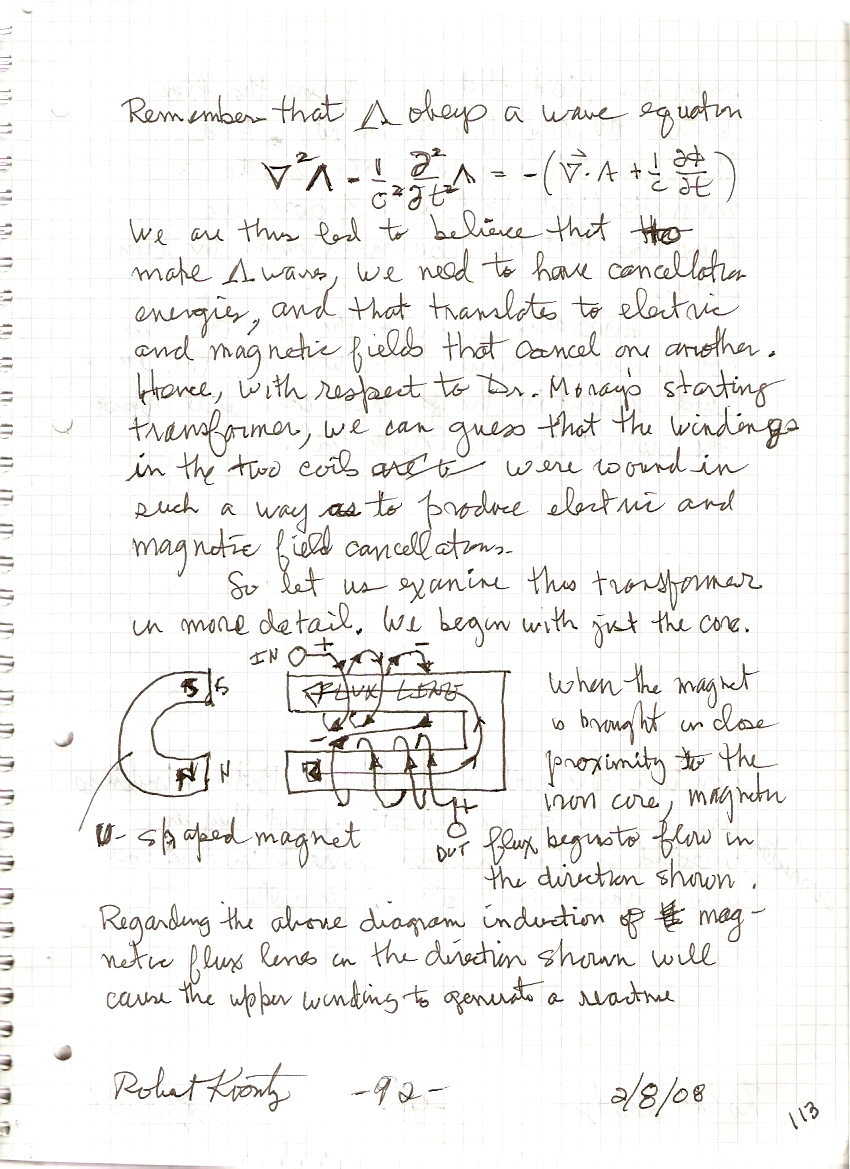 Remember that Λ obeys a wave equation
∇²Λ - 1/c² ∂²/∂t² Λ = -(∇⃗·A + 1/c ∂ϕ/∂t)
We are thus led to believe that to
make Λ waves, we need to have cancellation
energies, and that translates to electric
and magnetic fields that cancel one another.
Hence, with respect to Dr. Moray's starting
transformer, we can guess that the windings
in the two coils are to were wound in
such a way as to produce electric and
magnetic field cancellations.
So let us examine this transformer
in more detail. We begin with just the core.
IN + -
S S
FLUX LINE
-
N N
+
OUT
U-shaped magnet
When the magnet
is brought in close
proximity to the
iron core, magnetic
flux begins to flow in
the direction shown.
Regarding the above diagram induction of mag-
netic flux lines in the direction shown will
cause the upper winding to generate a reactive
Robert Koontz -92- 2/8/08
113